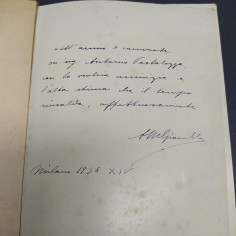 All' amico e camerata
on. ing. Antonio Pestalozza
con la vecchia amicizia e
l'alta stima che il tempo
rinsalda, affettuosamente
Milano 1936 XIV